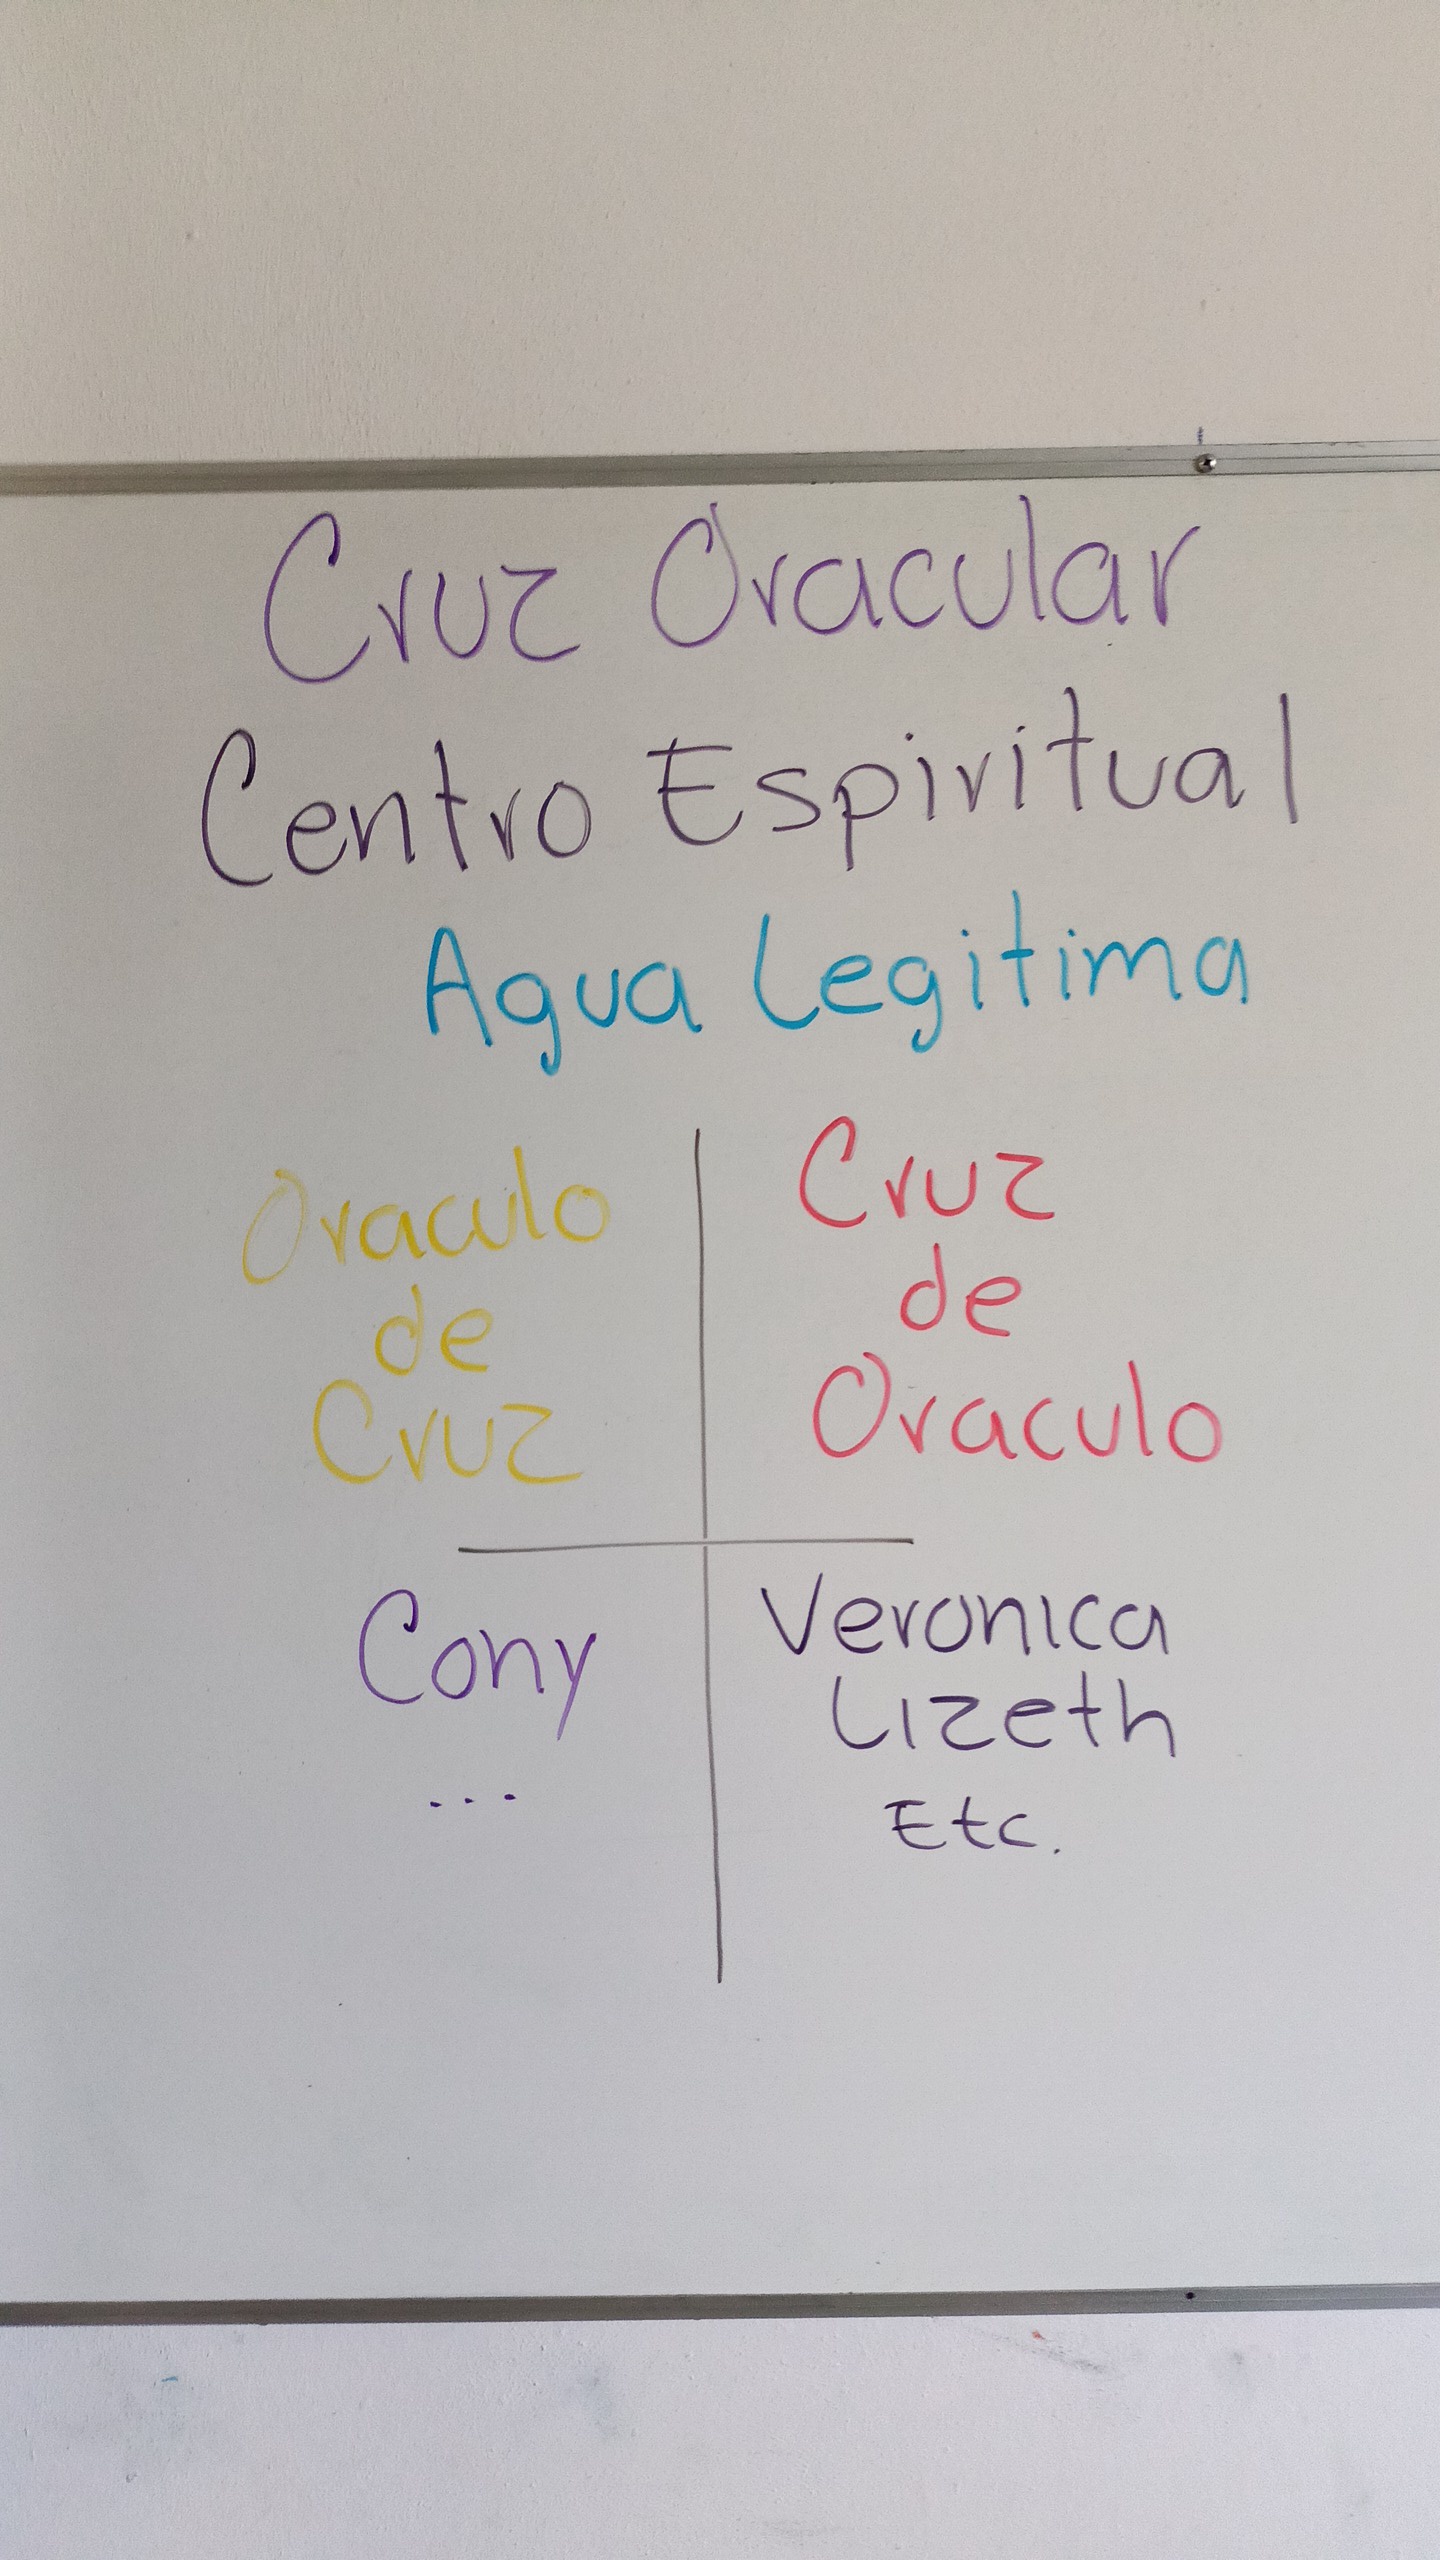 Cruz Oracular
Centro Espiritual
Agua Legitima
Oraculo
de
Cruz
Cruz
de
Oraculo
Cony
...
Veronica
Lizeth
Etc.